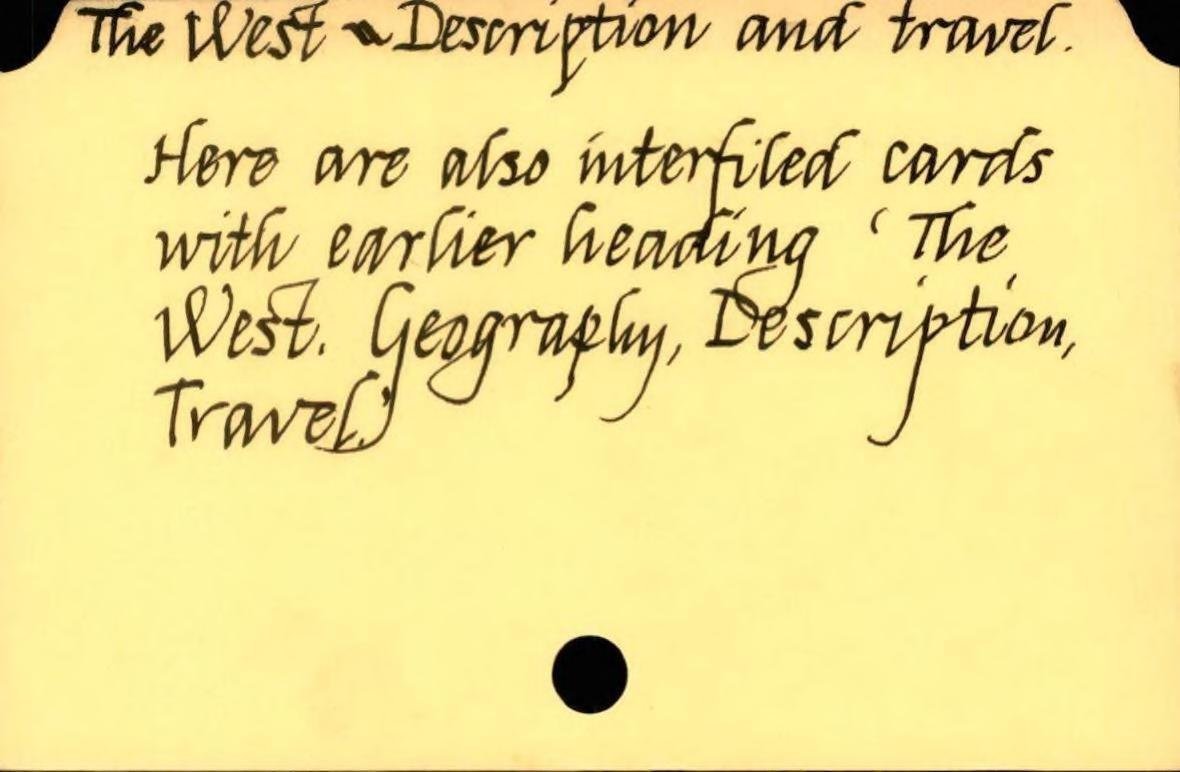 The West - Description and travel.
Here are also interfiled cards
with earlier heading ‘The
West. Geography, Description,
Travel.’